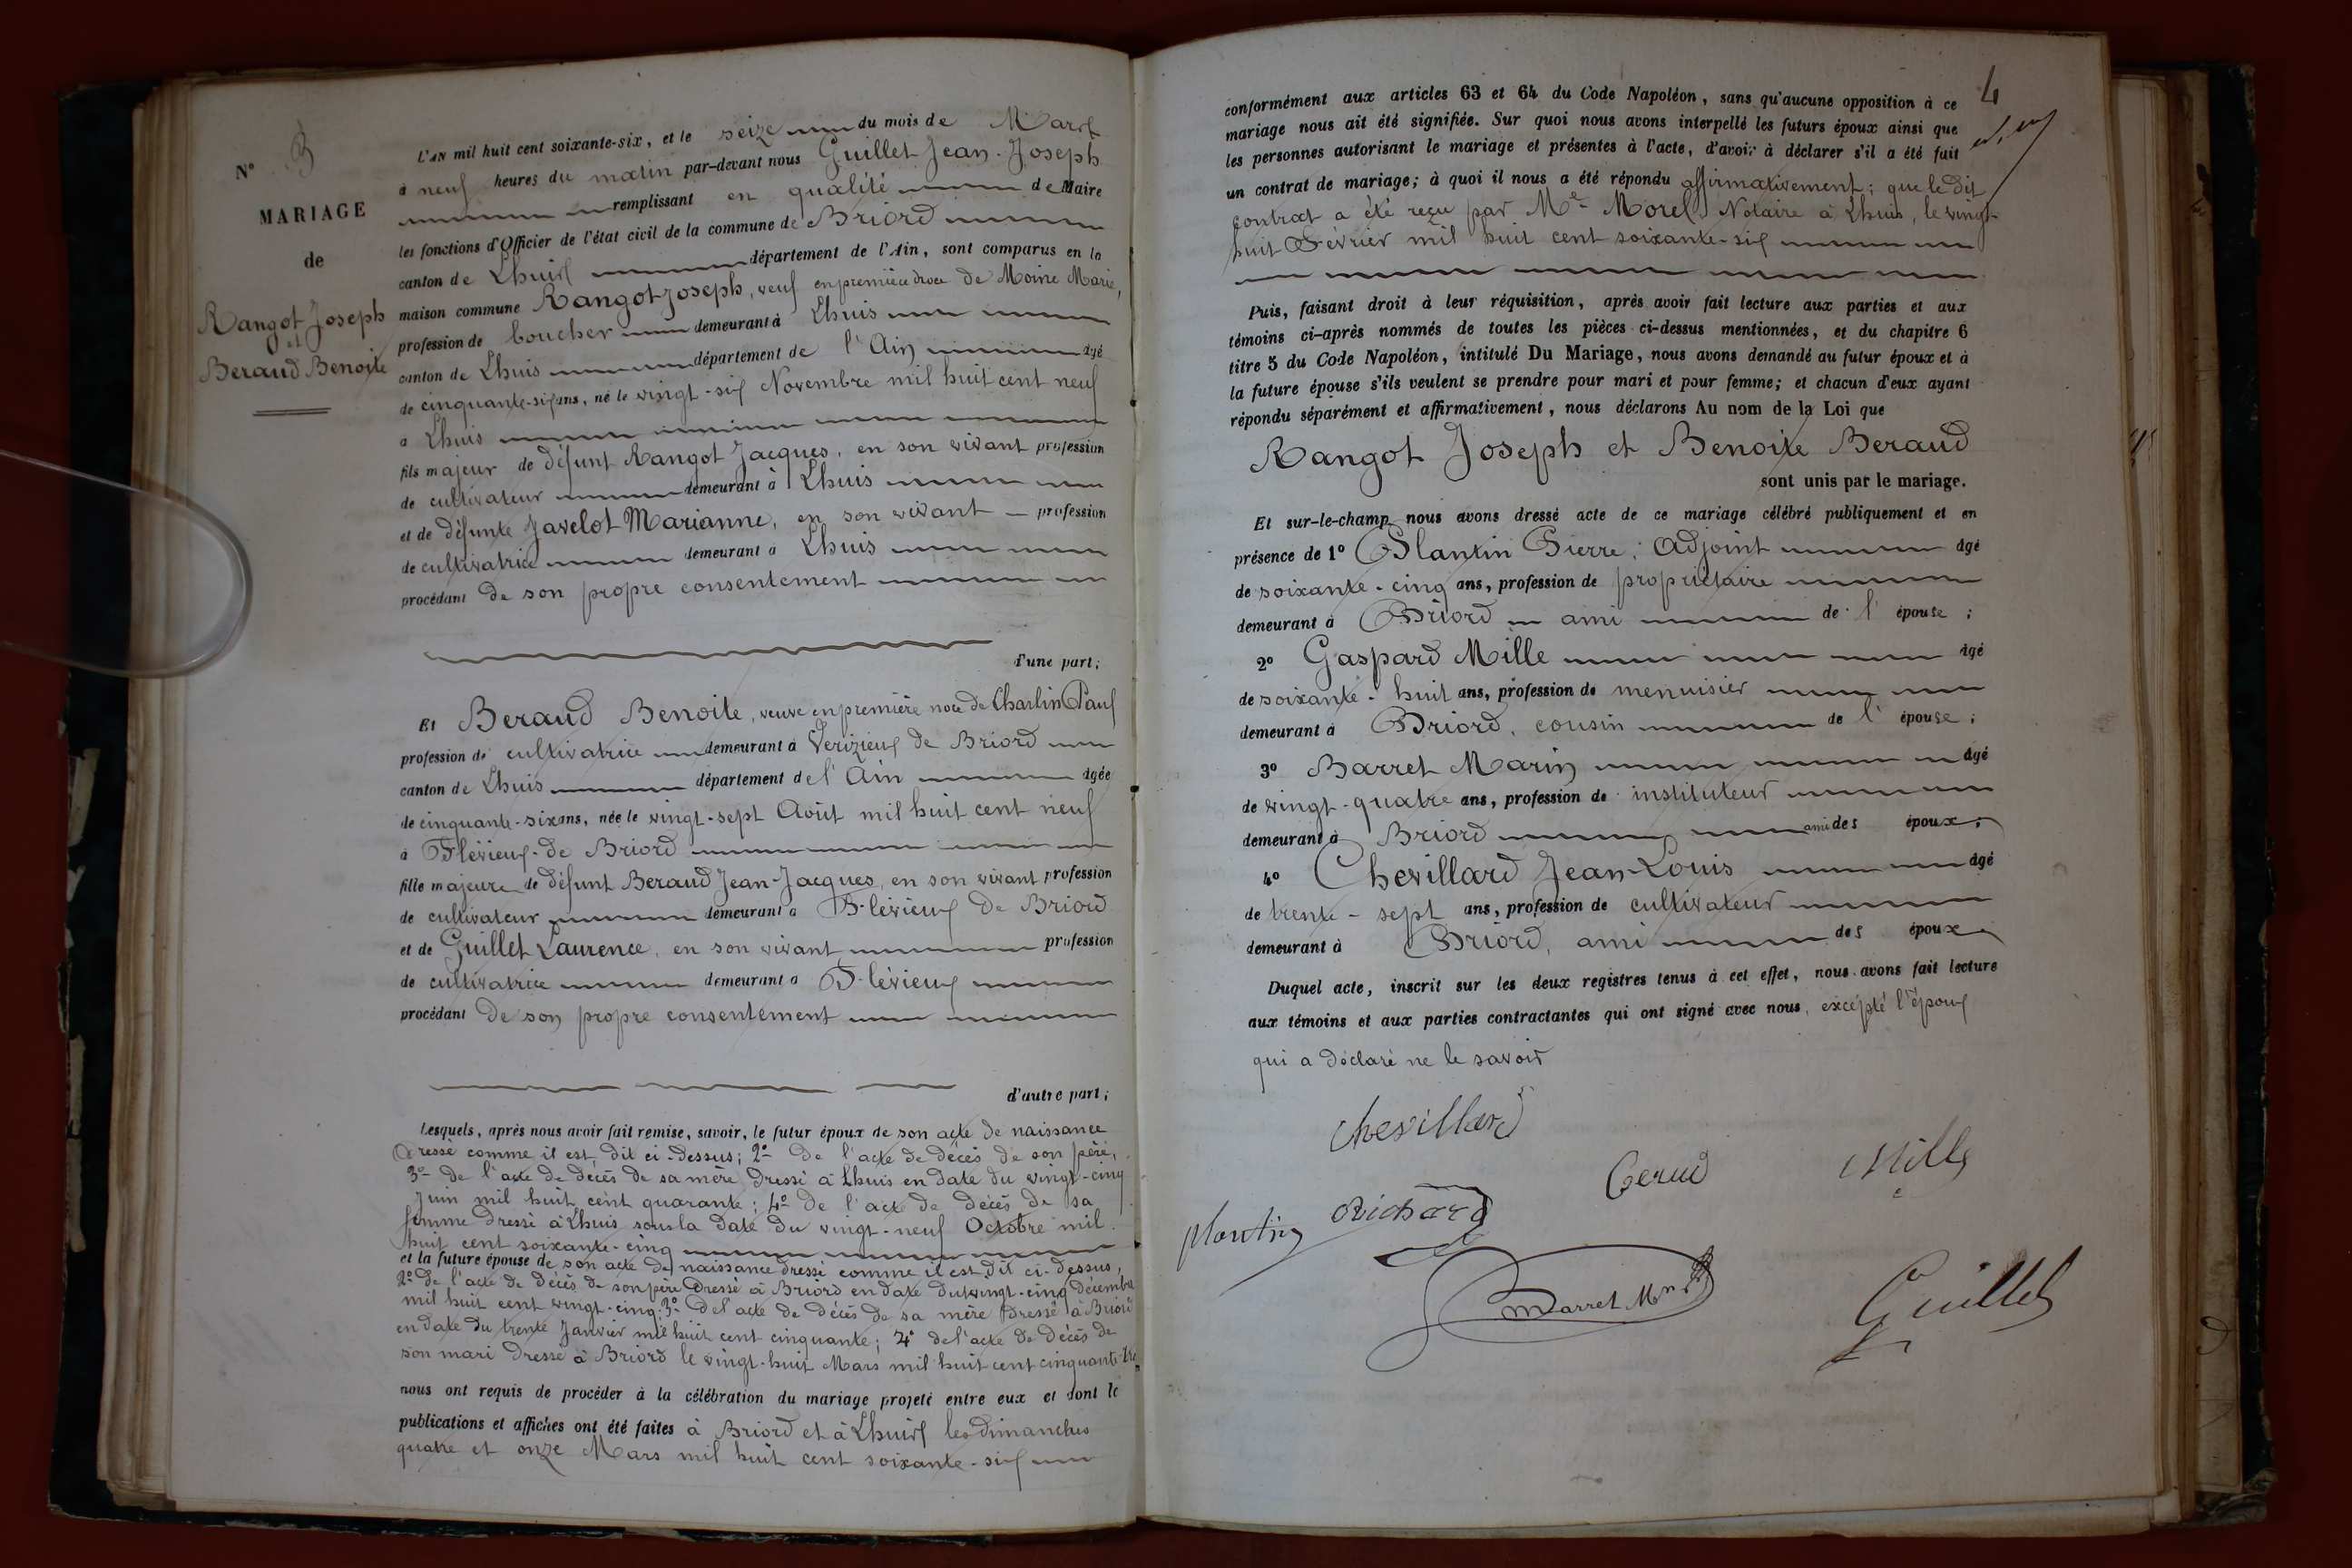 N° 3
MARIAGE
de
Rangot Joseph
et
Beraud Benoite
L'AN mil huit cent soixante-six, et le seize du mois de Mars
à neuf heures du matin par-devant nous Guillet Jean-Joseph
remplissant en qualité de Maire
les fonctions d'Officier de l'état civil de la commune de Briord
canton de Lhuis département de l'Ain, sont comparus en la
maison commune Rangot Joseph, veuf en première noce de Moine Marie,
profession de boucher demeurant à Lhuis
canton de Lhuis département de l'Ain âgé
de cinquante-six ans, né le vingt-six Novembre mil huit cent neuf
à Lhuis
fils majeur de défunt Rangot Jacques, en son vivant profession
de cultivateur demeurant à Lhuis
et de défunte Javelot Marianne, en son vivant profession
de cultivatrice demeurant à Lhuis
procédant de son propre consentement
d'une part;
Et Beraud Benoite, veuve en première noce de Charlin Paul
profession de cultivatrice demeurant à Verizieux de Briord
canton de Lhuis département de l'Ain âgée
de cinquante-six ans, née le vingt-sept Août mil huit cent neuf
à Flévieux de Briord
fille majeure de défunt Beraud Jean-Jacques, en son vivant profession
de cultivateur demeurant à Flévieux de Briord
et de Guillet Laurence, en son vivant profession
de cultivatrice demeurant à Flévieux
procédant de son propre consentement
d'autre part;
Lesquels, après nous avoir fait remise, savoir, le futur époux de son acte de naissance
dressé comme il est dit ci-dessus; 2° De l'acte de décès de son père,
3° de l'acte de décès de sa mère dressé à Lhuis en date du vingt-cinq
Juin mil huit cent quarante; 4° de l'acte de décès de sa
femme dressé à Lhuis sous la date du vingt-neuf Octobre mil
huit cent soixante-cinq
et la future épouse de son acte de naissance dressé comme il est dit ci-dessus,
2° de l'acte de décès de son père dressé à Briord en date du vingt-cinq Décembre
mil huit cent vingt-cinq; 3° de l'acte de décès de sa mère dressé à Briord
en date du trente Janvier mil huit cent cinquante; 4° de l'acte de décès de
son mari dressé à Briord le vingt-huit Mars mil huit cent cinquante
nous ont requis de procéder à la célébration du mariage projeté entre eux et dont le
publications et affiches ont été faites à Briord et à Lhuis les dimanches
quatre et onze Mars mil huit cent soixante-six
4
conformément aux articles 63 et 64 du Code Napoléon, sans qu'aucune opposition à ce
mariage nous ait été signifiée. Sur quoi nous avons interpellé les futurs époux ainsi que
les personnes autorisant le mariage et présentes à l'acte, d'avoir à déclarer s'il a été fait
un contrat de mariage; à quoi il nous a été répondu affirmativement; que le dit
contrat a été reçu par Me Morel Notaire à Lhuis, le vingt-
huit Février mil huit cent soixante-six
Puis, faisant droit à leur réquisition, après avoir fait lecture aux parties et aux
témoins ci-après nommés de toutes les pièces ci-dessus mentionnées, et du chapitre 6
titre 5 du Code Napoléon, intitulé Du Mariage, nous avons demandé au futur époux et à
la future épouse s'ils veulent se prendre pour mari et pour femme; et chacun d'eux ayant
répondu séparément et affirmativement, nous déclarons Au nom de la Loi que
Rangot Joseph et Benoite Beraud
sont unis par le mariage.
Et sur-le-champ nous avons dressé acte de ce mariage célébré publiquement et en
présence de 1° Plantin Pierre, Adjoint âgé
de soixante-cinq ans, profession de propriétaire
demeurant à Briord ami de l'épouse;
2° Gaspard Mille âgé
de soixante-huit ans, profession de menuisier
demeurant à Briord, cousin de l'épouse;
3° Barret Marin âgé
de vingt-quatre ans, profession de instituteur
demeurant à Briord ami des époux;
4° Chevillard Jean-Louis âgé
de trente-sept ans, profession de cultivateur
demeurant à Briord, ami des époux
Duquel acte, inscrit sur les deux registres tenus à cet effet, nous avons fait lecture
aux témoins et aux parties contractantes qui ont signé avec nous, excepté l'époux
qui a déclaré ne le savoir
Chevillard
Mille
Plantin Richard
Barret Mn
Guillet